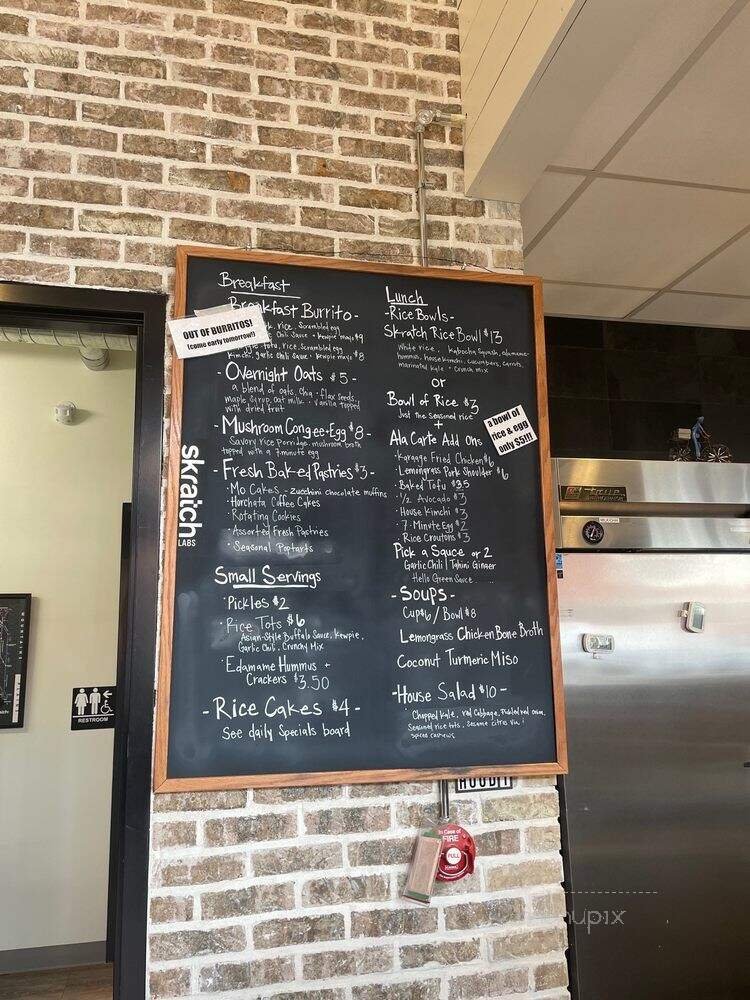 Breakfast
Breakfast Burrito -
rice, scrambled egg
Chili Sauce + Kewpie mayo $9
tofu, rice, scrambled egg
kimchi, garlic chili Sauce + Kewpie mayo $8
OUT OF BURRITOS!
(come early tomorrow!!)
- Overnight Oats $5 -
a blend of oats, chia + flax seeds,
maple syrup, oat milk, + vanilla topped
with dried fruit
- Mushroom Congee + Egg $8 -
Savory rice porridge, mushroom broth
topped with a 7-minute egg
- Fresh Baked Pastries $3 -
· Mo Cakes - zucchini chocolate muffins
· Horchata Coffee Cakes
· Rotating Cookies
· Assorted Fresh Pastries
· Seasonal Poptarts
skratch
LABS
Small Servings
· Pickles $2
· Rice Tots $6
Asian-Style Buffalo Sauce, Kewpie,
Garlic Chili, Crunchy Mix
· Edamame Hummus +
Crackers $3.50
- Rice Cakes $4 -
See daily Specials board
Lunch
- Rice Bowls -
Skratch Rice Bowl $13
White rice, Kabocha Squash, edamame
hummus, house kimchi, cucumbers, carrots,
marinated kale + crunch mix
or
Bowl of Rice $3
Just the seasoned rice
+
a bowl of
rice & egg
only $5!!!
Ala Carte Add Ons
· Karaage Fried Chicken $6
· Lemongrass Pork Shoulder $6
· Baked Tofu $3.5
· 1/2 Avocado $3
· House Kimchi $3
· 7-Minute Egg $2
· Rice Croutons $3
Pick a Sauce or 2
Garlic Chili | Tahini Ginger
Hello Green Sauce
- Soups -
Cup $6 / Bowl $8
Lemongrass Chicken Bone Broth
Coconut Turmeric Miso
- House Salad $10 -
Chopped kale, red Cabbage, Pickled red onion,
Seasoned rice tots, Sesame citrus vin, +
spiced cashews
RESTROOM
true
In Case of
FIRE
PULL